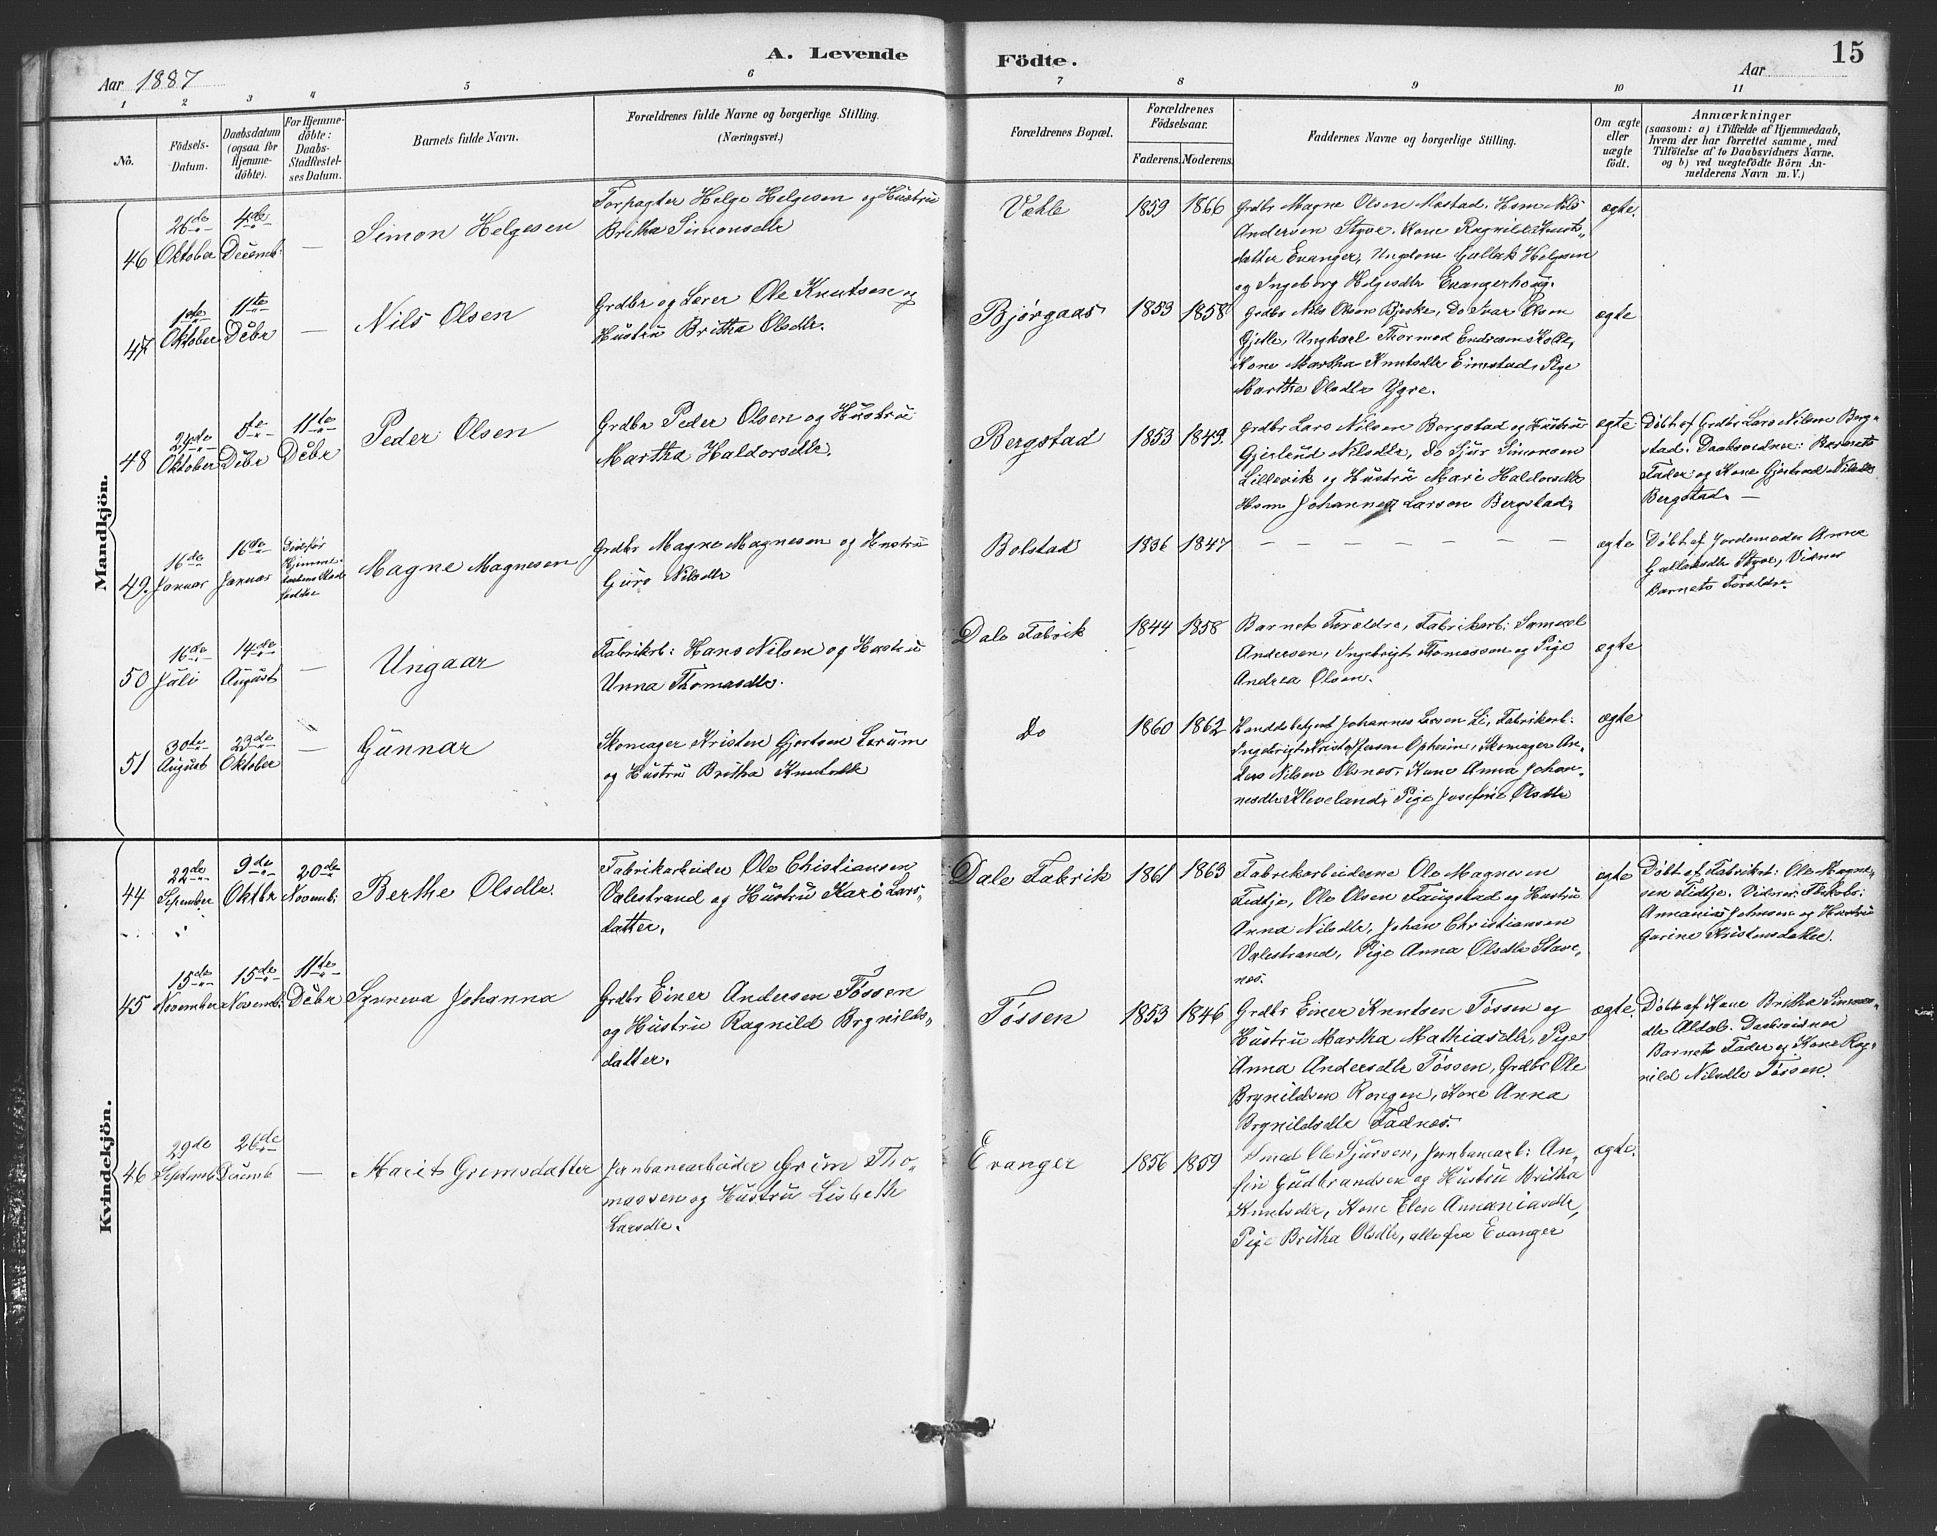 A. Levende Födte.
15
Aar 1887
Aar
1 2 3 4 5 6 7 8 9 10 11
No.
Födsels-
Datum.
Daabsdatum
(ogsaa for
Hjemme-
döbte).
For Hjemme-
döbte:
Daabs-
Stadfæstel-
ses Datum.
Barnets fulde Navn.
Forældrenes fulde Navne og borgerlige Stilling.
(Næringsvei.)
Forældrenes Bopæl.
Forældrenes
Födselsaar.
Faderens. Moderens.
Faddernes Navne og borgerlige Stilling.
Om ægte
eller
uægte
födt.
Anmærkninger
(saasom: a) i Tilfælde af Hjemmedaab,
hvem der har forrettet samme, med
Tilföielse af to Daabsvidners Navne.
og b) ved uægtefödte Börn An-
melderens Navn m. V.)
Mandkjön.
46
26de
Oktober
4de
Decemb:
—
Simon Helgesen
Forpagter Helge Helgesen og Hustru
Britha Simonsdtr
Væhle
1859 1866
Grdbr Magne Olsen Nastad, Hsm Nils
Andersen Styve, Kone Ragnild Knuts-
datter Evanger, Ungdom Gullak Helgesen
og Ingeborg Helgesdtr Evangerhoug.
ægte.
47
1de
Oktober
11te
Debr
—
Nils Olsen
Grdbr og Lærer Ole Knutsen og
Hustru Britha Olsdtr.
Bjørgaas
1853 1858
Grdbr Nils Olsen Bjerke, Do Ivar Olsen
Gjelle, Ungkarl Thormod Endresen Kolle,
Kone Martha Knutsdtr Eimstad, Pige
Martha Olsdtr Ygre.
ægte
48
Oktober
Debr
11te
Debr
Peder Olsen
Grdbr Peder Olsen og Hustru
Martha Haldorsdtr.
Bergstad
1853 1849.
Grdbr Lars Nilsen Bergstad og Hustru
Gjerlund Nilsdtr, Do Sjur Simonsen
Lillevik og Hustru Mari Haldorsdtr
Hsm Johannes Larsen Bergstad.
ægte
Døbt af Grdbr Lars Nilsen Berg-
stad. Daabsvidner: Barnets
Fader og Kone Gjerlund Nilsdtr
Bergstad. —
49.
16de
Januar
16de
Januar
Magne Magnesen
Grdbr Magne Magnesen og Hustru
Guro Nilsdtr
Bolstad
1836 1847
— — — — — — —
ægte
Døbt af Jordemoder Anna
Gullaksdtr Styve, Vidner
Barnets Forældre.
50
16de
Juli
14de
August
—
Ungaar
Fabrikarb: Hans Nilsen og Hustru
Unna Thomasdtr.
Dale Fabrik
1844 1858
Barnets Forældre, Fabrikarb: Samuel
Andersen, Ingebrigt Thomassen og Pige
Andrea Olsen.
ægte
51
30te
August
23de
Oktober
—
Gunnar
Skomager Kristen Gjertsen Lerum
og Hustru Britha Knutsdtr
Do
1860 1862
Handelsbetjent Johannes Larsen Li, Fabrikarb:
Ingebrigt Kristoffersen Opheim, Skomager An-
ders Nilsen Olsnes, Kone Anna Johan-
nesdtr Kleveland, Pige Josefine Olsdtr
ægte
Kvindekjön.
44
22de
September
9de
Oktbr
20de
Novemb:
Berthe Olsdtr.
Fabrikarbeider Ole Christiansen
Valestrand og Hustru Kari Lars-
datter.
Dale Fabrik
1861 1863
Fabrikarbeiderne Ole Magnesen
Fidtje, Ole Olsen Faugstad og Hustru
Anna Nilsdtr, Johan Christiansen
Valestrand, Pige Anna Olsdtr Stave-
nes.
ægte
Døbt af Fabrikarb: Ole Magne-
sen Fidtje. Vidner: Fabrikarb:
Annanias Johnsen og Hustru
Garine Kristensdatter.
45
15de
November
15de
Novemb:
11te
Debr
Synneva Johanna
Grdbr Einer Andersen Tøssen
og Hustru Ragnild Brynilds-
datter.
Tøssen
1853 1846
Grdbr Einer Knutsen Tøssen og
Hustru Martha Mathiasdtr, Pige
Anna Andersdtr Tøssen, Grdbr Ole
Brynildsen Rongen, Kone Anna
Brynildsdtr Fadnes.
ægte.
Døbt af Kone Britha Simons-
dtr Aldal. Daabsvidner
Barnets Fader og Kone Rag-
nild Nilsdtr Tøssen.
46
29de
Septemb
26de
Decemb
—
Marit Grimsdatter
Jernbanearbeider Grim Tho-
massen og Hustru Lisbeth
Larsdtr.
Evanger
1856 1859
Smed Ole Sjursen, Jernbanearb: An-
fin Gudbrandsen og Hustru Britha
Knutsdtr, Kone Elen Annaniasdtr,
Pige Britha Olsdtr, alle fra Evanger
ægte.